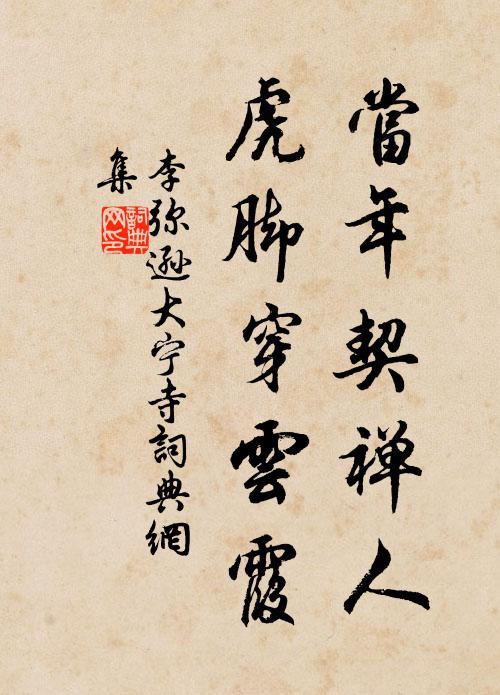 當年契禅人
虎脚穿雲霞
李弥遜大宁寺詞典網
集
詞典網印